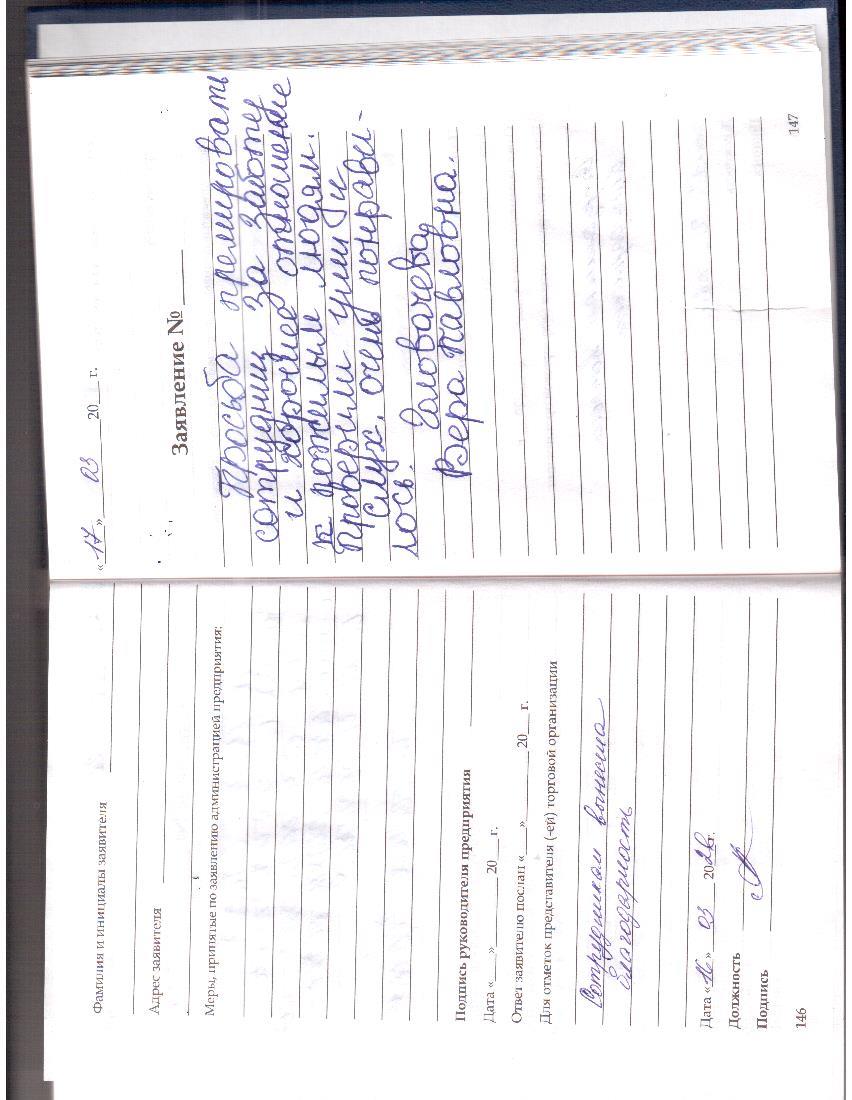 Фамилия и инициалы заявителя
Адрес заявителя
Меры, принятые по заявлению администрацией предприятия:
Подпись руководителя предприятия
Дата «___» ______ 20___ г.
Ответ заявителю послан «___» ______ 20___ г.
Для отметок представителя (-ей) торговой организации
Сотрудникам вынесена
благодарность
Дата «16» 03 2026г.
Должность
Подпись
146
«17» 03 20___ г.
Заявление № ____
Просьба премировать
сотрудниц за заботу
и хорошее отношение
к пожилым людям.
Проверили уши и
слух, очень понрави-
лось. Головачева
Вера Павловна.
147